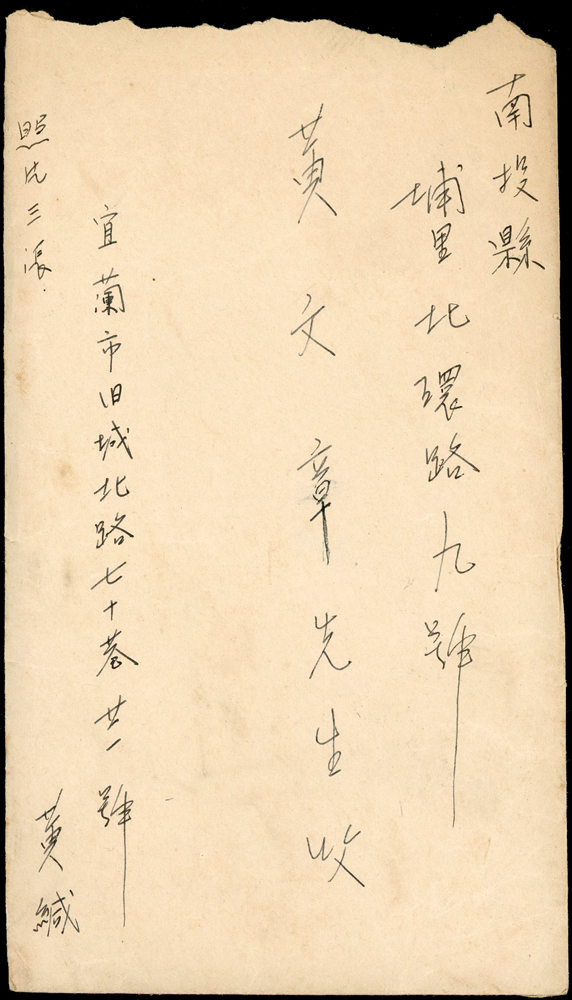 南投縣
埔里北環路九號
黃文章先生收
宜蘭市旧城北路七十巷廿一號
黃緘
照片三張.